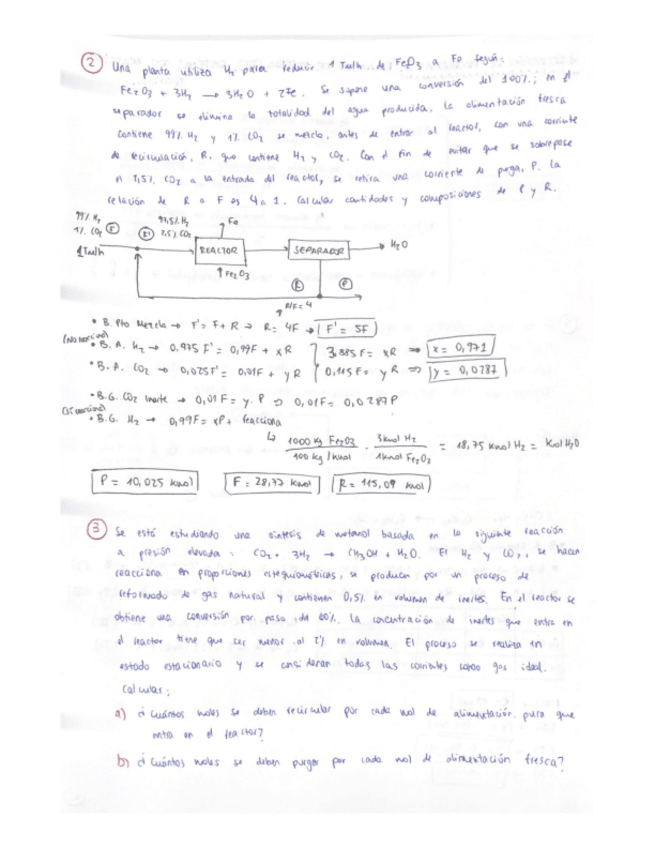 2 Una planta utiliza H2 para reducir 1 Tm/h de Fe2O3 a Fe según:
Fe2O3 + 3H2 → 3H2O + 2Fe. Se supone una conversión del 100%; en el
separador se elimina la totalidad del agua producida. La alimentación fresca
contiene 99% H2 y 1% CO2 se mezcla, antes de entrar al reactor, con una corriente
de recirculación, R, que contiene H2 y CO2. Con el fin de evitar que se sobrepase
el 2,5% CO2 a la entrada del reactor, se retira una corriente de purga, P. La
relación de R a F es 4 a 1. Calcular cantidades y composiciones de P y R.
99% H2
1% CO2 F
97,5% H2
F' 2,5% CO2
Fe
1 Tm/h
REACTOR
SEPARADOR
H2O
Fe2O3
R
P
R/F = 4
• B. Pto Mezcla → F' = F + R → R = 4F → F' = 5F
• B. A. H2 → 0.975 F' = 0,99F + xR 3,885F = xR ⇒ x = 0,971
• B. A. CO2 → 0,025F' = 0,01F + yR 0,115F = yR ⇒ y = 0,0287
• B.G. CO2 Inerte → 0,01F = y · P ⇒ 0,01F = 0,0287P
• B.G. H2 → 0,99F = xP + reacciona
1000 kg Fe2O3 / 160 kg/kmol · 3kmol H2 / 1kmol Fe2O3 = 18,75 kmol H2 = Kmol H2O
P = 10,025 kmol F = 28,77 Kmol R = 115,09 kmol
3 Se está estudiando una síntesis de metanol basada en la siguiente reacción
a presión elevada: CO2 + 3H2 → CH3OH + H2O. El H2 y CO2, se hacen
reacciona en proporciones estequiométricas, se producen por un proceso de
reformado de gas natural y contienen 0,5% en volumen de inertes. En el reactor se
obtiene una conversión por paso de 60%. La concentración de inertes que entra en
el reactor tiene que ser menor al 2% en volumen. El proceso se realiza en
estado estacionario y se consideran todas las corrientes como gas ideal.
Calcular:
a) ¿Cuántos moles se deben recircular por cada mol de alimentación para que
entra en el reactor?
b) ¿Cuántos moles se deben purgar por cada mol de alimentación fresca?